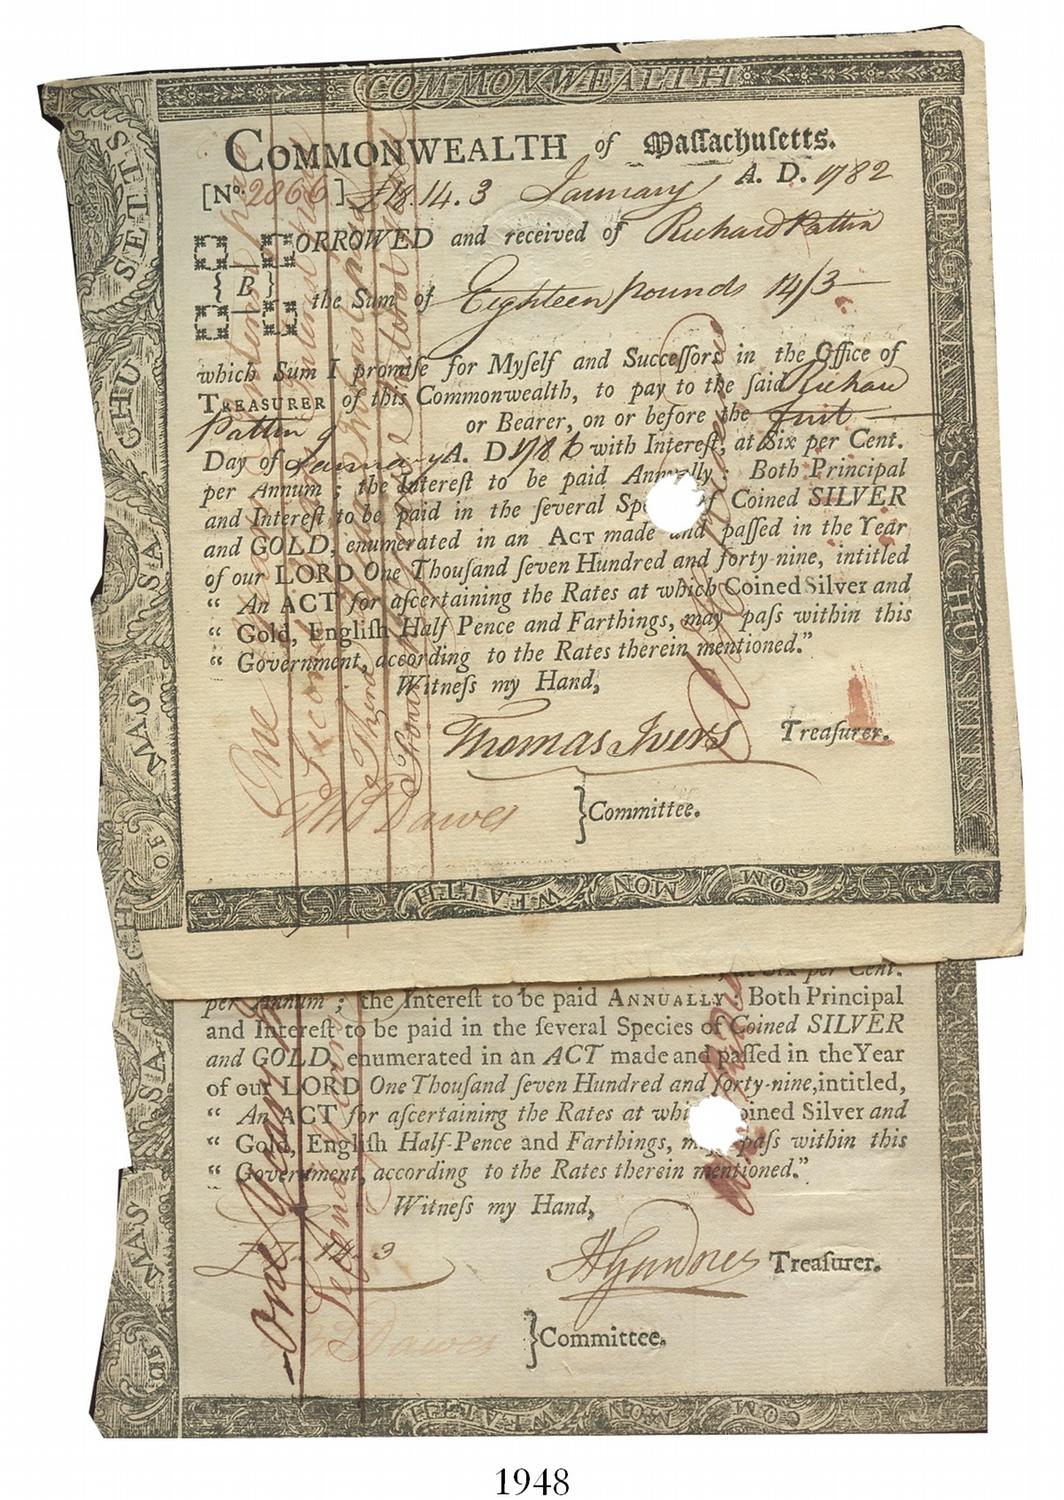 COMMONWEALTH
COMMONWEALTH of Maſſachuſetts.
[No. 2866] £18.14.3 January A. D. 1782
BORROWED and received of Richard Pattin
the Sum of Eighteen pounds 14/3
which Sum I promiſe for Myſelf and Succeſſors in the Office of
TREASURER of this Commonwealth, to pay to the ſaid Richard
Pattin or Bearer, on or before the firſt
Day of January A. D. 1786 with Intereſt, at Six per Cent.
per Annum; the Intereſt to be paid Annually: Both Principal
and Intereſt to be paid in the ſeveral of Coined SILVER
and GOLD, enumerated in an ACT made and paſſed in the Year
of our LORD One Thouſand ſeven Hundred and forty-nine, intitled
“ An ACT for aſcertaining the Rates at which Coined Silver and
“ Gold, Engliſh Half Pence and Farthings, may paſs within this
“ Government, according to the Rates therein mentioned.”
Witneſs my Hand,
Thomas Ivers Treaſurer.
Tho Dawes } Committee.
COMMONWEALTH
OF MASSACHUSETTS
One
Second
Third
per Annum; the Intereſt to be paid ANNUALLY: Both Principal
and Intereſt to be paid in the ſeveral Species of Coined SILVER
and GOLD, enumerated in an ACT made and paſſed in the Year
of our LORD One Thouſand ſeven Hundred and forty-nine, intitled,
“ An ACT for aſcertaining the Rates at Coined Silver and
“ Gold, Engliſh Half-Pence and Farthings, paſs within this
“ Government, according to the Rates therein mentioned.”
Witneſs my Hand,
H Gardner Treaſurer.
Dawes } Committee.
COMMONWEALTH
One Year
Second
1948